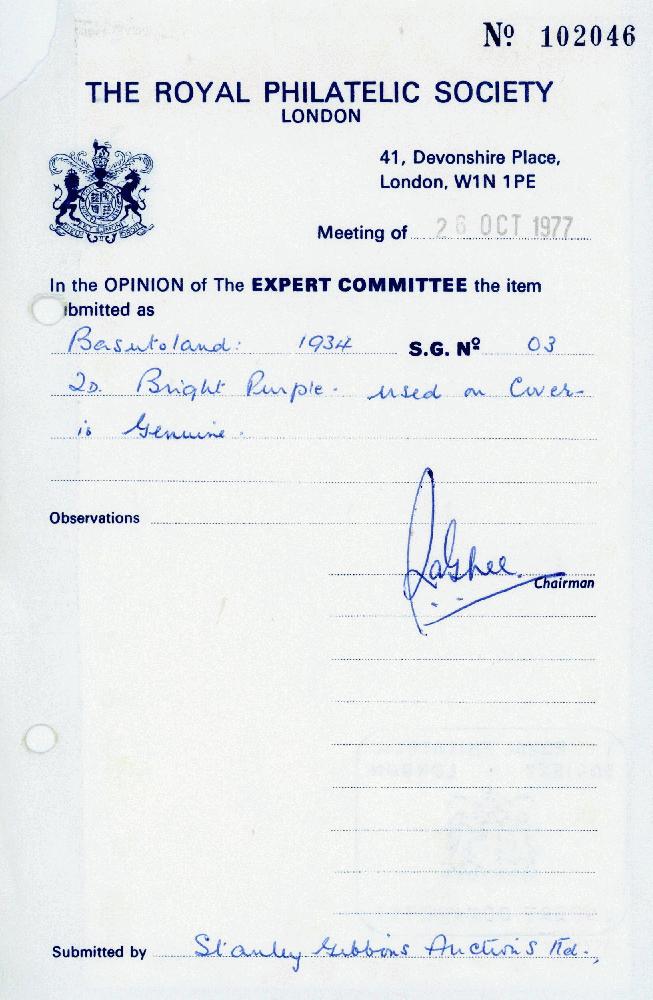 Nº 102046
THE ROYAL PHILATELIC SOCIETY
LONDON
41, Devonshire Place,
London, W1N 1PE
Meeting of 26 OCT 1977
In the OPINION of The EXPERT COMMITTEE the item
bmitted as
Basutoland: 1934 S.G. Nº 03
2D. Bright Purple - used on Cover -
is Genuine.
Observations
Chairman
Submitted by Stanley Gibbons Auctions Ltd.,